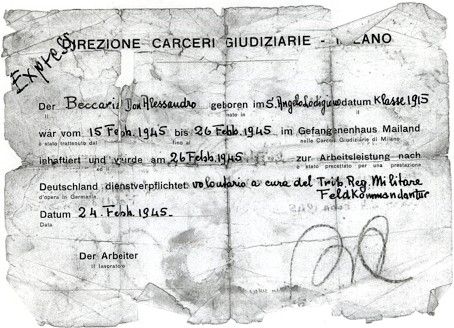 Express
DIREZIONE CARCERI GIUDIZIARIE - MILANO
Der Beccaria Don Alessandro geboren im S. Angelo Lodigiano datum Klasse 1915
il nato in il
war vom 15 Febb. 1945 bis 26 Febb. 1945 im Gefangenenhaus Mailand
è stato trattenuto dal fino al nelle Carceri Giudiziarie di Milano
inhaftiert und wurde am 26 Febb. 1945 zur Arbeitsleistung nach
è stato precettato per una prestazione
Deutschland dienstverpflichtet volontario a cura del Trib. Reg. Militare
d'opera in Germania Feldkommandantur
Datum 24 Febb. 1945.
Data
Der Arbeiter
il lavoratore